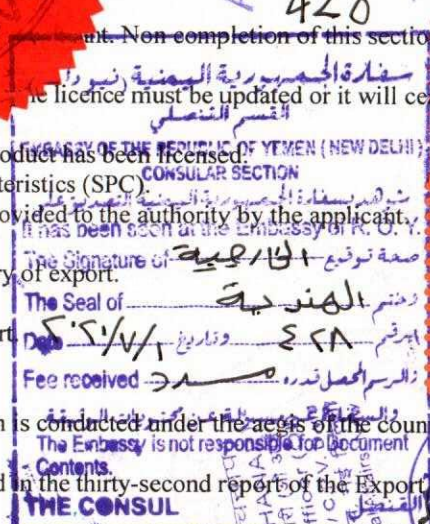 420
Non completion of this sectio
سفارة الجمهورية اليمنية (نيودلهي)
e licence must be updated or it will ce
القسم القنصلي
oduct has been licensed.
EMBASSY OF THE REPUBLIC OF YEMEN (NEW DELHI)
CONSULAR SECTION
teristics (SPC).
ovided to the authority by the applicant.
It has been seen at the Embassy of R. O. Y.
The Signature of الخارجية صحة توقيع
ry of export.
The Seal of الهندية وختم
Date ٢٠٢١/٧/١ وتاريخ ٤٢٨ برقم
Fee received مسدد والرسم المحصل قدره
n is conducted under the aegis of the coun
The Embassy is not responsible for Document
Contents.
d in the thirty-second report of the Export
THE CONSUL القنصل